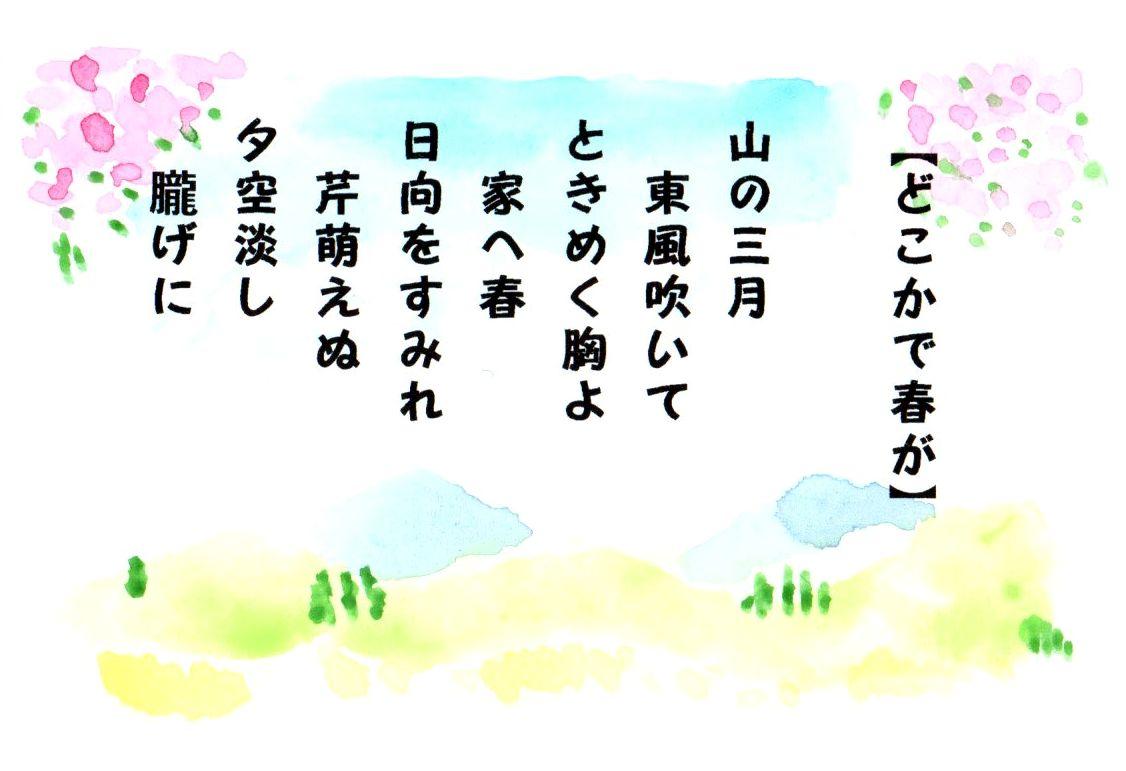 【どこかで春が】
山の三月
東風吹いて
ときめく胸よ
家へ春
日向をすみれ
芹萌えぬ
夕空淡し
朧げに